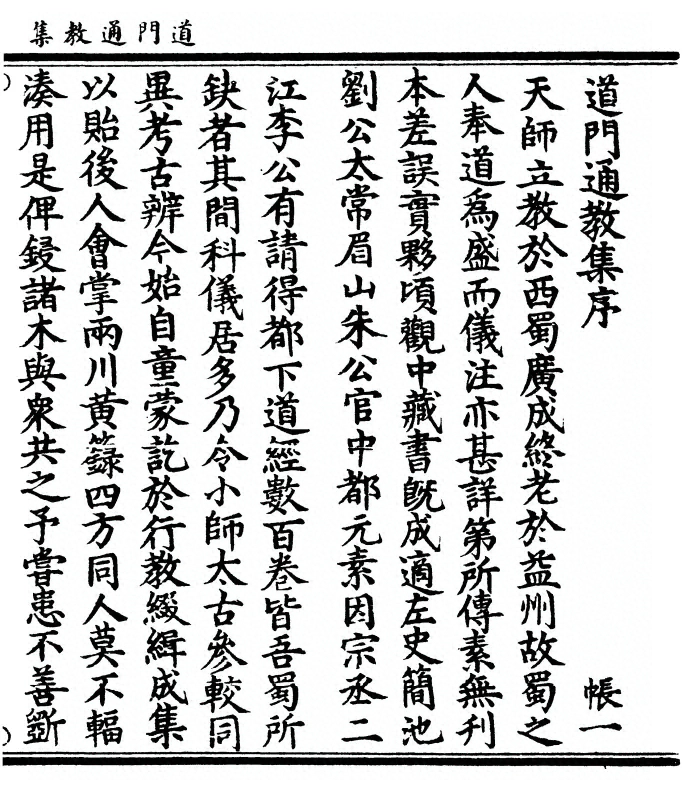 道門通教集
道門通教集序
帳一
天師立教於西蜀廣成終老於益州故蜀之
人奉道爲盛而儀注亦甚詳第所傳素無刋
本差誤實夥頃觀中藏書旣成適左史簡池
劉公太常眉山朱公官中都元素因宗丞二
江李公有請得都下道經數百卷皆吾蜀所
缺者其間科儀居多乃令小師太古參較同
異考古辨今始自童蒙訖於行教綴緝成集
以貽後人會掌兩川黃籙四方同人莫不輻
湊用是俾鋟諸木與衆共之予嘗患不善斵